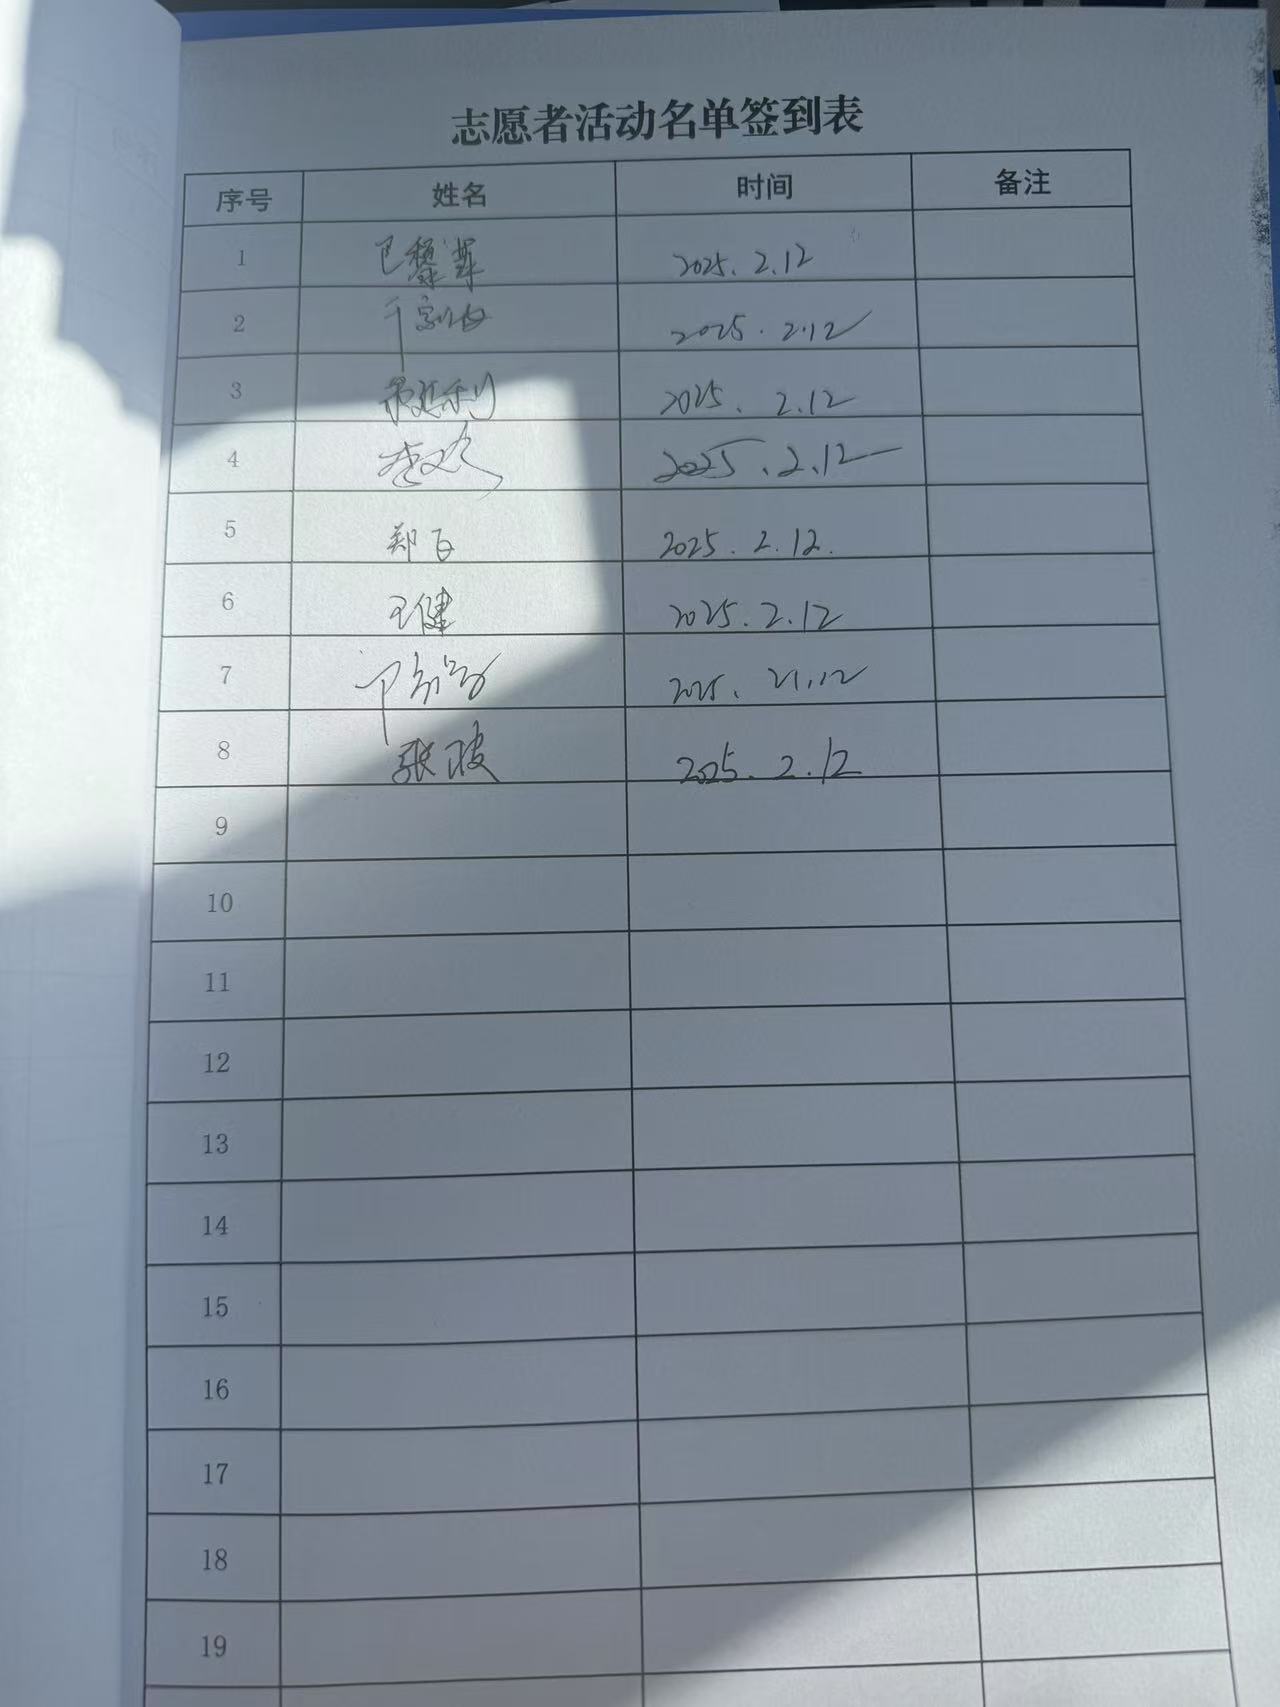 志愿者活动名单签到表
序号 姓名 时间 备注
1 2025.2.12
2 2025.2.12
3 2025.2.12
4 2025.2.12
5 郑白 2025.2.12.
6 王健 2025.2.12
7 2025.
8 张 2025.2.12
9
10
11
12
13
14
15
16
17
18
19